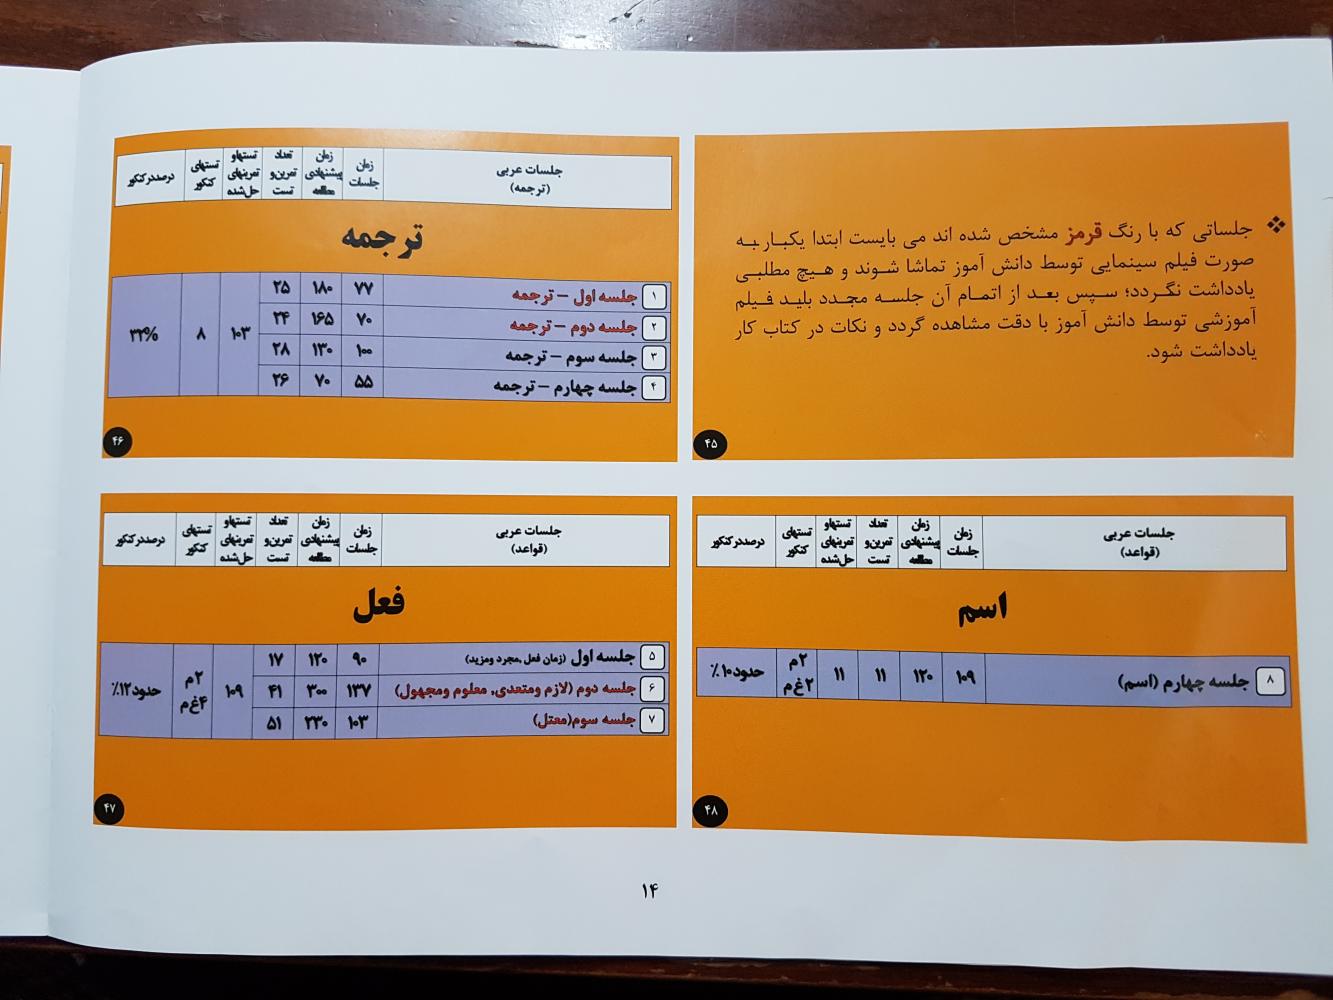 ❖ جلساتی که با رنگ قرمز مشخص شده اند می بایست ابتدا یکبار به
صورت فیلم سینمایی توسط دانش آموز تماشا شوند و هیچ مطلبی
یادداشت نگردد؛ سپس بعد از اتمام آن جلسه مجدد بلید فیلم
آموزشی توسط دانش آموز با دقت مشاهده گردد و نکات در کتاب کار
یادداشت شود.
۴۵
جلسات عربی (ترجمه) زمان جلسات زمان پیشنهادی مطالعه تعداد تمرین و تست تستها و تمرینهای حل شده تستهای کنکور درصد در کنکور
ترجمه
۱ جلسه اول – ترجمه ۷۷ ۱۸۰ ۲۵
۲ جلسه دوم – ترجمه ۷۰ ۱۶۵ ۲۴
۳ جلسه سوم – ترجمه ۱۰۰ ۱۳۰ ۲۸
۴ جلسه چهارم – ترجمه ۵۵ ۷۰ ۲۶
۱۰۳ ۸ ۳۲%
۴۶
جلسات عربی (قواعد) زمان جلسات زمان پیشنهادی مطالعه تعداد تمرین و تست تستها و تمرینهای حل شده تستهای کنکور درصد در کنکور
اسم
۸ جلسه چهارم (اسم) ۱۰۹ ۱۲۰ ۱۱ ۱۱ ۲م ۲غ م حدود۱۰٪
۴۸
جلسات عربی (قواعد) زمان جلسات زمان پیشنهادی مطالعه تعداد تمرین و تست تستها و تمرینهای حل شده تستهای کنکور درصد در کنکور
فعل
۵ جلسه اول (زمان فعل ،مجرد ومزید) ۹۰ ۱۲۰ ۱۷
۶ جلسه دوم (لازم ومتعدی، معلوم ومجهول) ۱۳۷ ۳۰۰ ۴۱
۷ جلسه سوم(معتل) ۱۰۳ ۲۳۰ ۵۱
۱۰۹ ۲م ۴غ م حدود۱۲٪
۴۷
۱۴